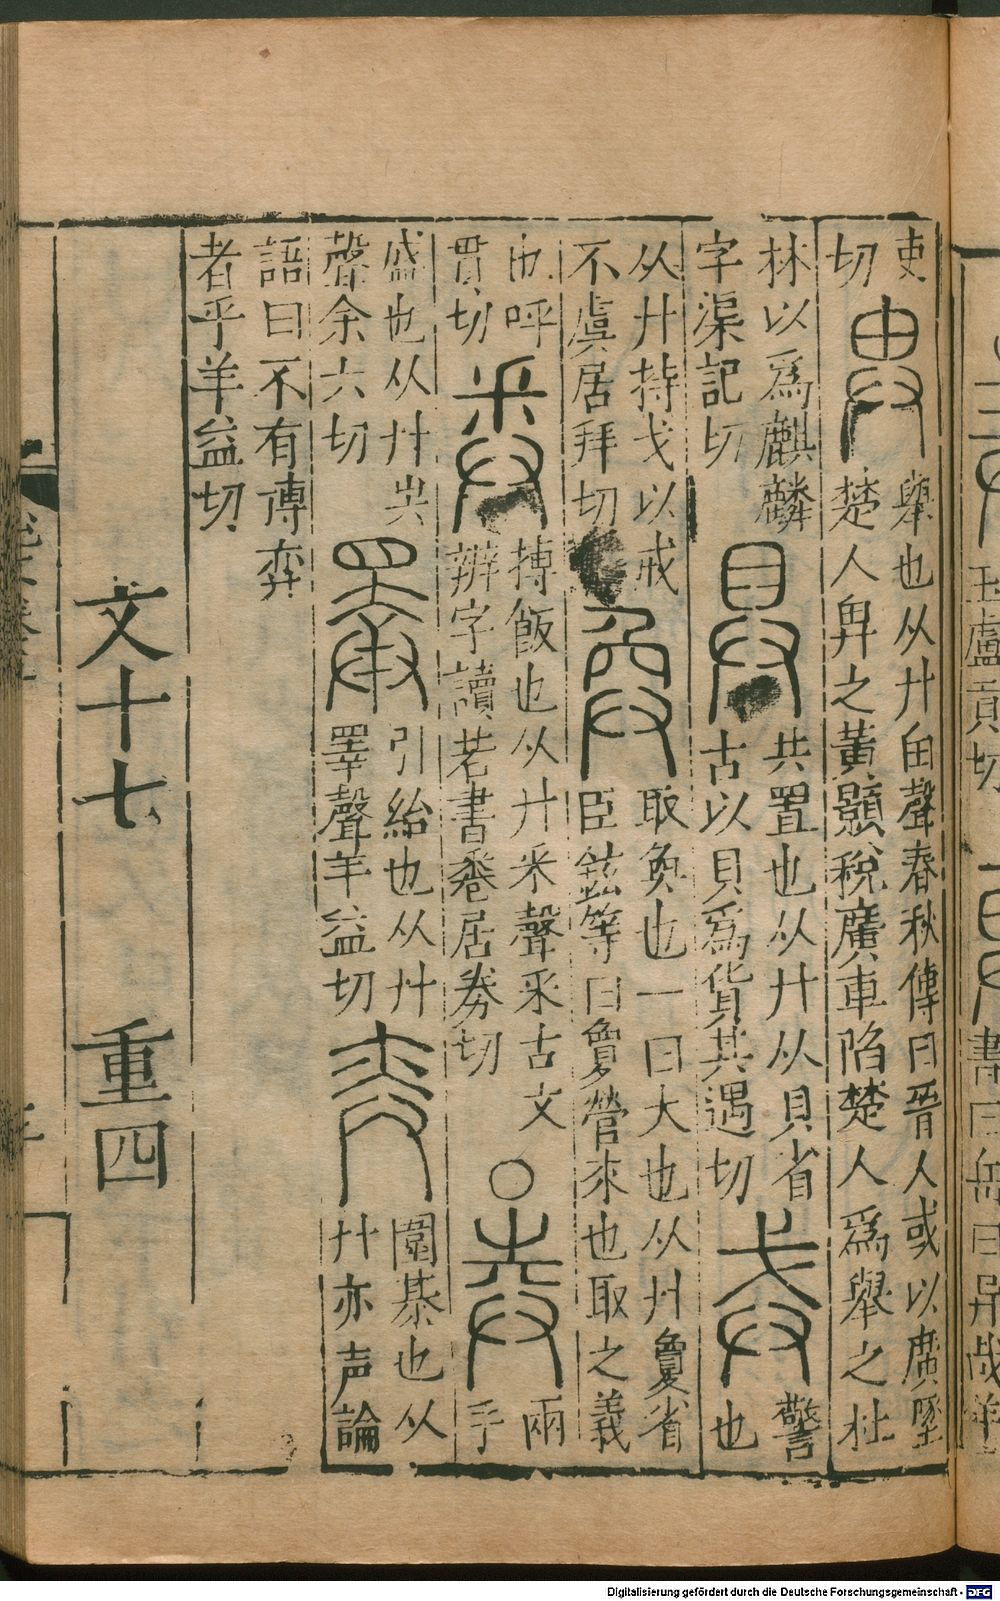 吏
切
舉也从廾甶聲春秋傳曰晉人或以廣墜
楚人畁之黃顥稅廣車陷楚人爲舉之杜
林以爲麒麟
字渠記切
具
共置也从廾从貝省
古以貝爲貨其遇切
戒
警
也
从廾持戈以戒
不虞居拜切
奐
取奐也一曰大也从廾夐省
臣鉉等曰夐營求也取之義
也呼
貫切
𢍏
摶飯也从廾釆聲釆古文
辧字讀若書卷居券切
○
𢍱
兩
手
盛也从廾共
聲余六切
睪
引給也从廾
睪聲羊益切
弈
圍棊也从
廾亦声論
語曰不有博弈
者乎羊益切
文十七 重四
Digitalisierung gefördert durch die Deutsche Forschungsgemeinschaft - DFG